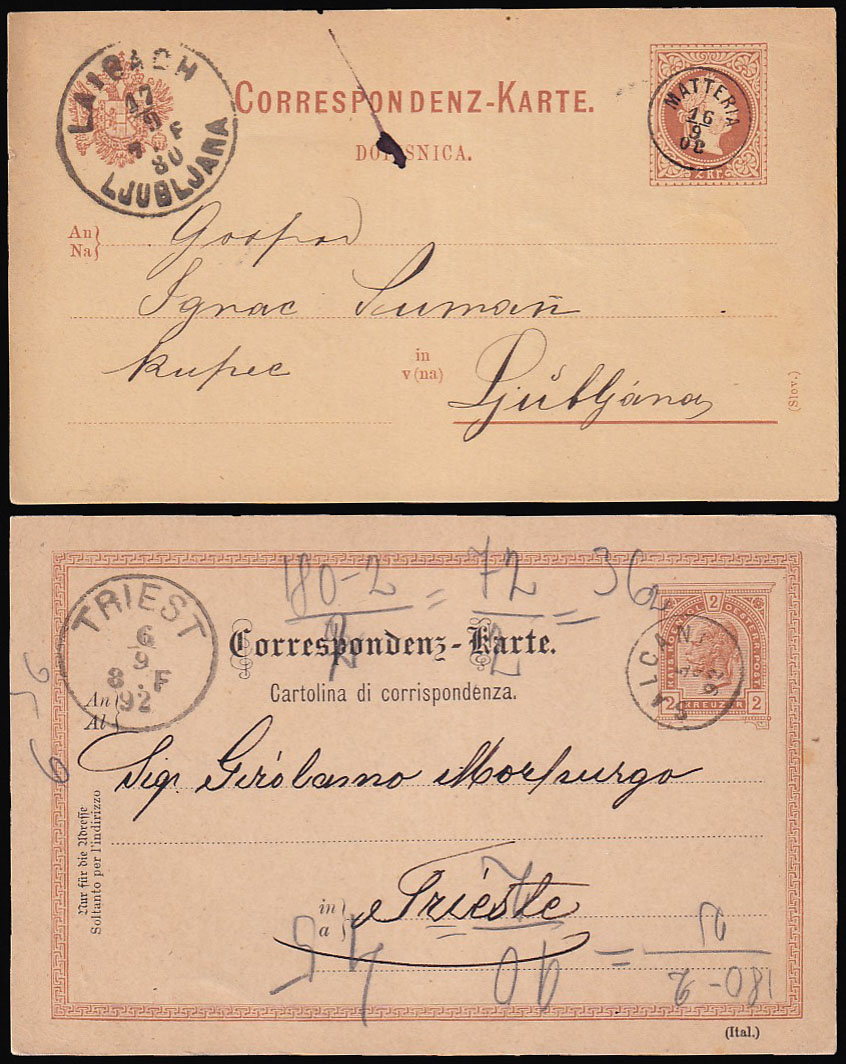 LAIBACH
17
9
F
80
LJUBLJANA
CORRESPONDENZ-KARTE.
DOPISNICA.
MATTERIA
16
9
80
2 KR.
An
Na
Gospod
Ignac
kupec
in
v (na)
Ljubljána
(Slov.)
180-2
2
= 72
2
= 36
TRIEST
6
9
8. F
92
Correspondenz-Karte.
Cartolina di corrispondenza.
2
2 KREUZER 2
SALCANO
An
Al
Sig. Girolamo Morpurgo
Nur für die Adresse
Soltanto per l'indirizzo
in
a
Trieste
180-2
(Ital.)